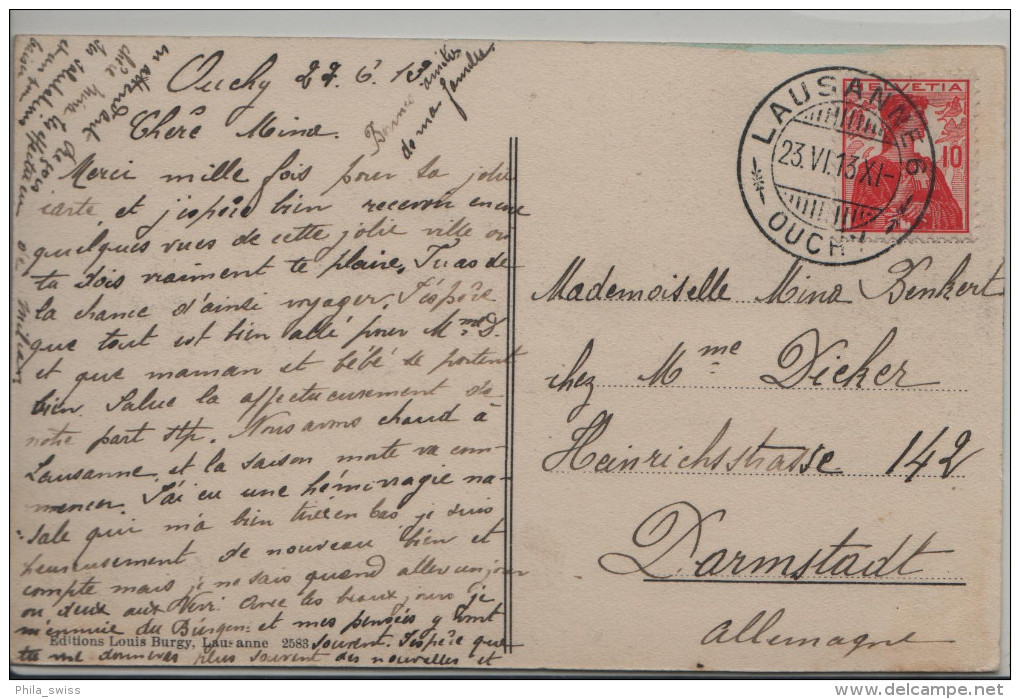 Ouchy 27. 6. 13
Bonnes amitiés
de ma famille
Chère Mina.
Merci mille fois pour ta jolie
carte et j'espère bien recevoir encore
quelques vues de cette jolie ville où
tu dois vraiment te plaire. Tu as de
la chance d'ainsi voyager. J'espère
que tout est bien allé pour Mme D.
et que maman et bébé se portent
bien. Salue la affectueusement de
notre part stp. Nous avons chaud à
Lausanne et la saison morte va com-
mencer. J'ai eu une hémorragie na-
sale qui m'a bien tirée en bas je suis
heureusement de nouveau bien et
compte mais je ne sais quand aller un jour
ou deux aux Verr. Avec les beaux jours je
m'ennuie du Bürgen et mes pensées y vont
souvent. J'espère que
tu me donneras plus souvent des nouvelles et
en attendant
chère Mina
Editions Louis Burgy, Lausanne 2583
HELVETIA
10
LAUSANNE 6
23.VI.13 XI-
OUCHY
Mademoiselle Mina Benkert
chez Mme Dicher
Heinrichstrasse 142
Darmstadt
Allemagne
Phila_swiss
delcampe.net